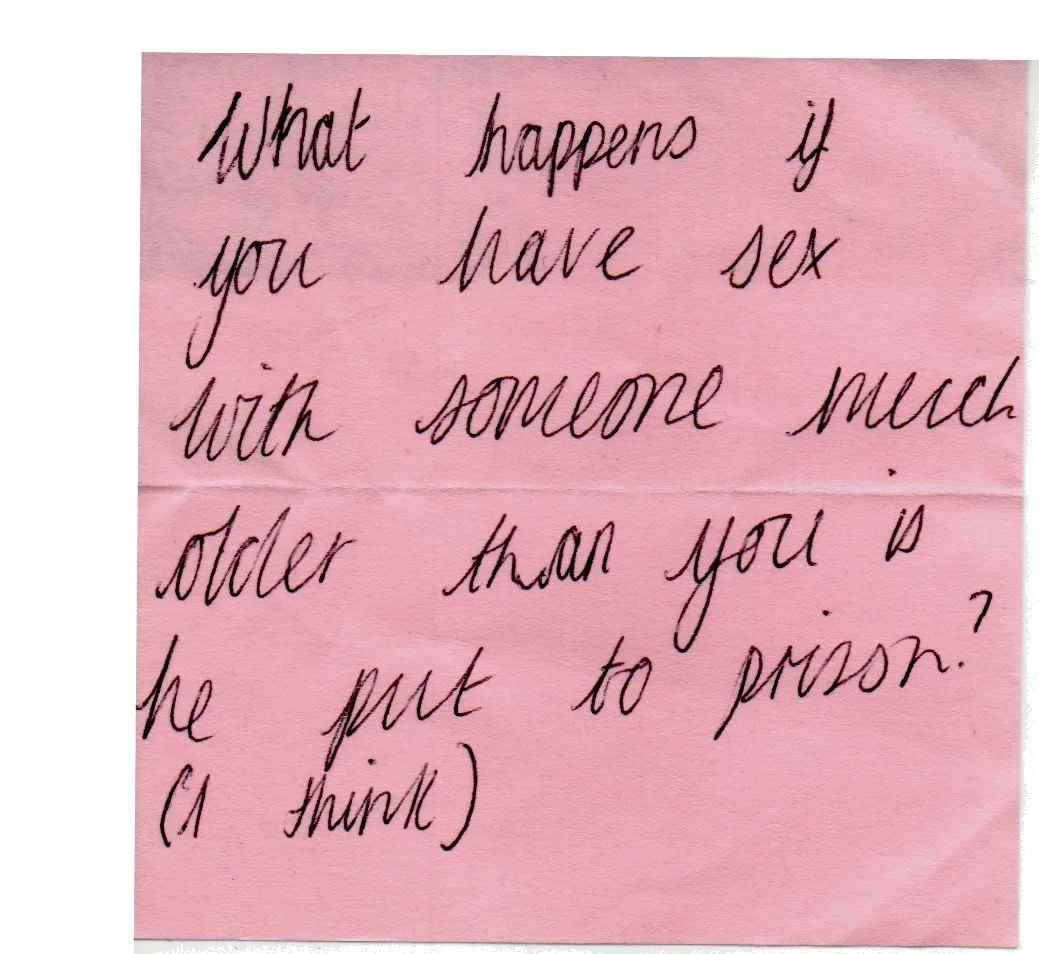 What happens if
you have sex
with someone much
older than you is
he put to prison?
(I think)